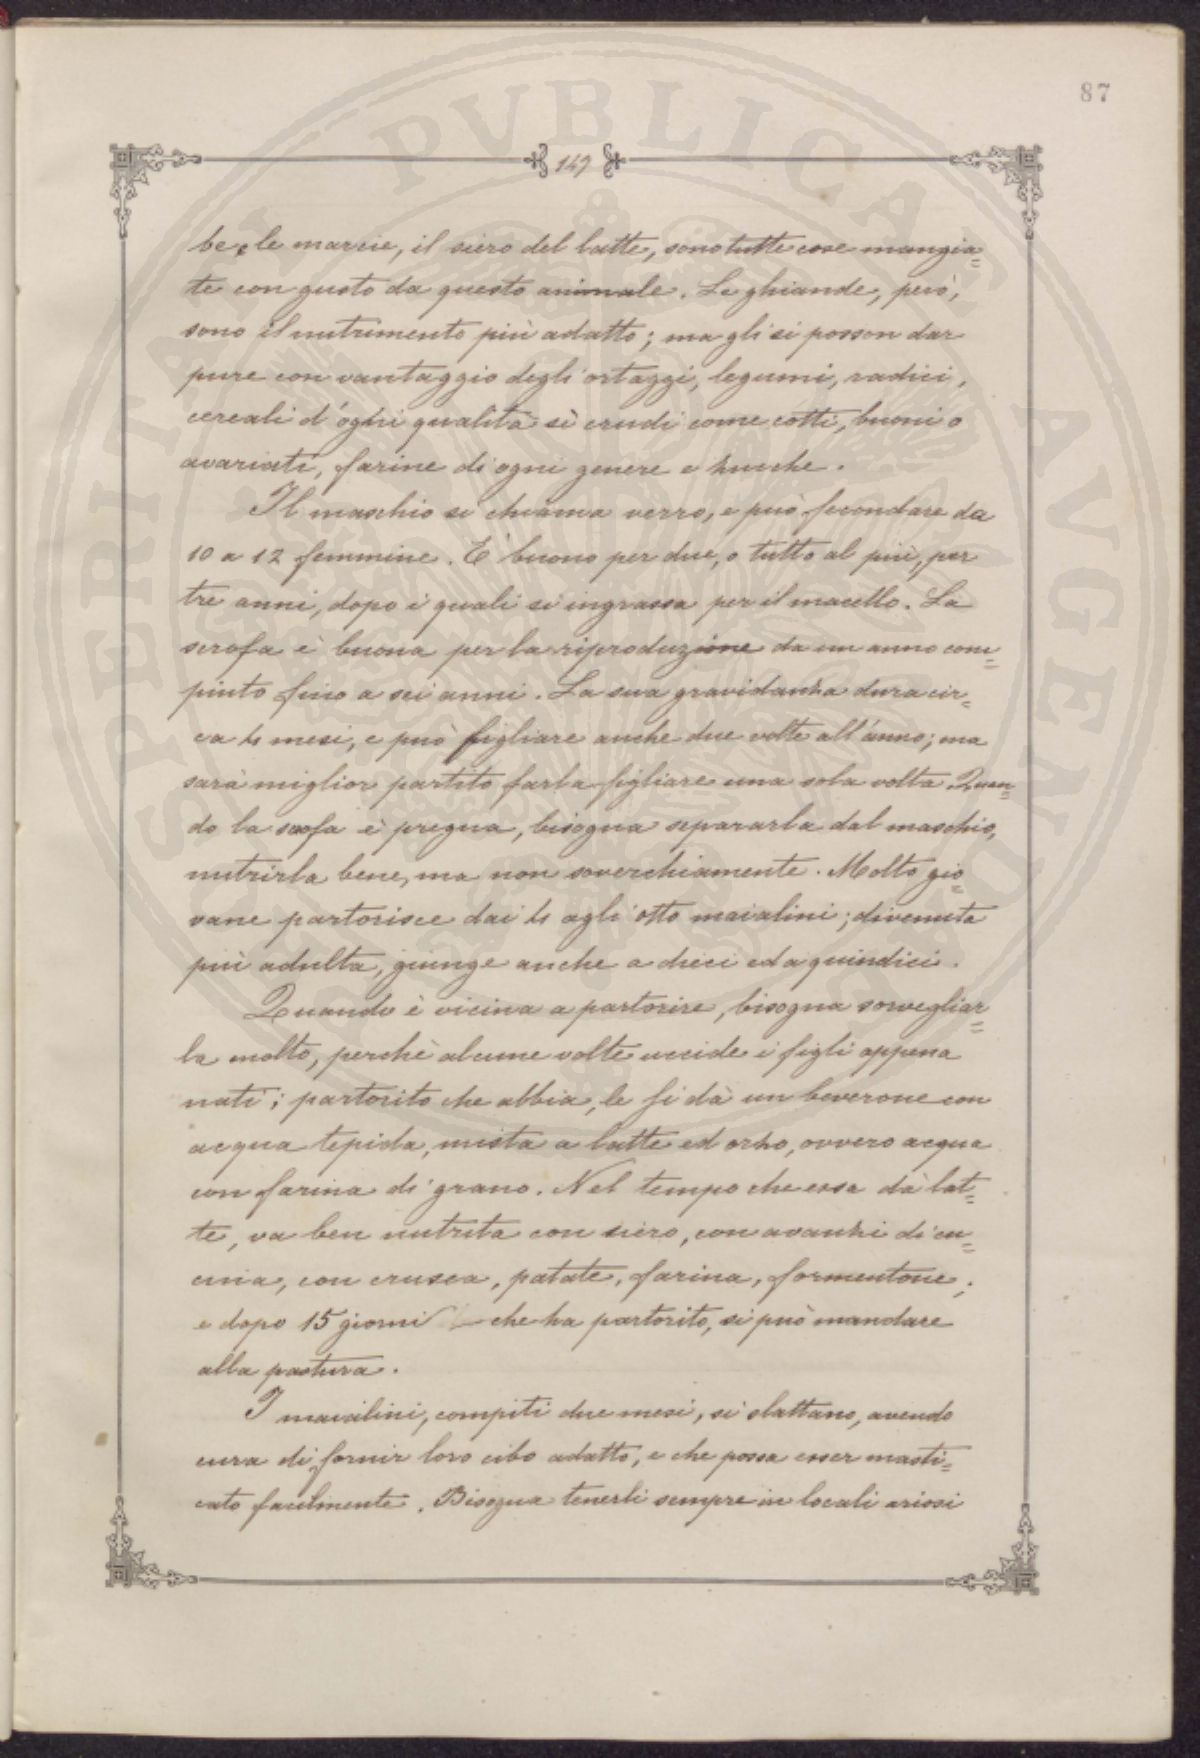 87
149
be, le marcie, il siero del latte, sono tutte cose mangia=
te con gusto da questo animale. Le ghiande, però,
sono il nutrimento più adatto; ma gli si posson dar
pure con vantaggio degli ortaggi, legumi, radici,
cereali d'ogni qualità sì crudi come cotti, buoni o
avariati, farine di ogni genere e zucche.
Il maschio si chiama verro, e può fecondare da
10 a 12 femmine. E' buono per due, o tutto al più, per
tre anni, dopo i quali si ingrassa per il macello. La
scrofa è buona per la riproduzione da un anno com=
piuto fino a sei anni. La sua gravidanza dura cir=
ca 4 mesi, e può figliare anche due volte all'anno; ma
sarà miglior partito farla figliare una sola volta. Quan=
do la scrofa è pregna, bisogna separarla dal maschio,
nutrirla bene, ma non soverchiamente. Molto gio=
vane partorisce dai 4 agli otto maialini; divenuta
più adulta, giunge anche a dieci ed a quindici.
Quando è vicina a partorire, bisogna sorvegliar=
la molto, perchè alcune volte uccide i figli appena
nati; partorito che abbia, le si dà un beverone con
acqua tepida, mista a latte ed orzo, ovvero acqua
con farina di grano. Nel tempo che essa dà lat=
te, va ben nutrita con siero, con avanzi di cu=
cina, con crusca, patate, farina, formentone;
e dopo 15 giorni che ha partorito, si può mandare
alla pastura.
I maialini, compiti due mesi, si slattano, avendo
cura di fornir loro cibo adatto, e che possa esser masti=
cato facilmente. Bisogna tenerli sempre in locali ariosi
PVBLICAE
AVGENDAE